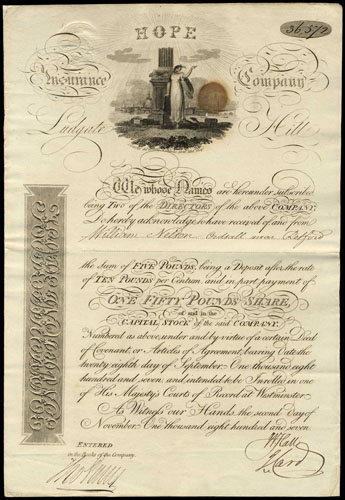 HOPE
36,572
Insurance Company
Ludgate Hill
We whose Names are hereunder subscribed
being Two of the DIRECTORS of the above COMPANY,
do hereby acknowledge to have received of and from
William Nelson Ordsall near Retford
the Sum of FIVE POUNDS, being a Deposit after the rate
of TEN POUNDS per Centum, and in part payment of
ONE FIFTY POUNDS SHARE,
of and in the
CAPITAL STOCK of the said COMPANY,
Numbered as above, under and by virtue of a certain Deed
of Covenant, or Articles of Agreement, bearing Date the
twenty eighth day of September, One thousand eight
hundred and seven, and intended to be Inrolled in one
of His Majesty's Courts of Record at Westminster.
As Witness our Hands, the second Day of
November, One thousand eight hundred and seven.
ENTERED
in the Books of the Company.